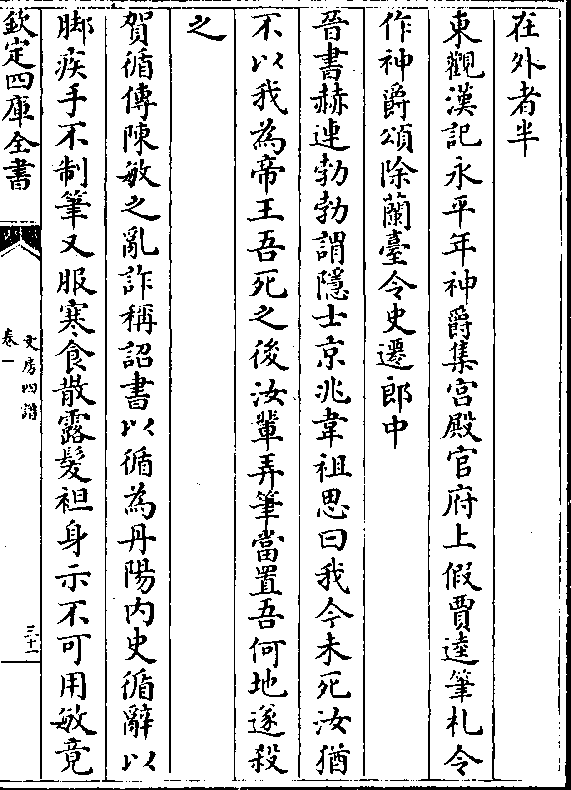 在外者半
東觀漢記永平年神爵集宫殿官府上假賈逵筆札令
作神爵頌除蘭臺令史遷郎中
晉書赫連勃勃謂隱士京兆韋祖思曰我今未死汝猶
不以我為帝王吾死之後汝輩弄筆當置吾何地遂殺
之
賀循傳陳敏之亂詐稱詔書以循為丹陽内史循辭以
脚疾手不制筆又服寒食散露髮袒身示不可用敏竟
欽定四庫全書
文房四譜
卷一
三十一